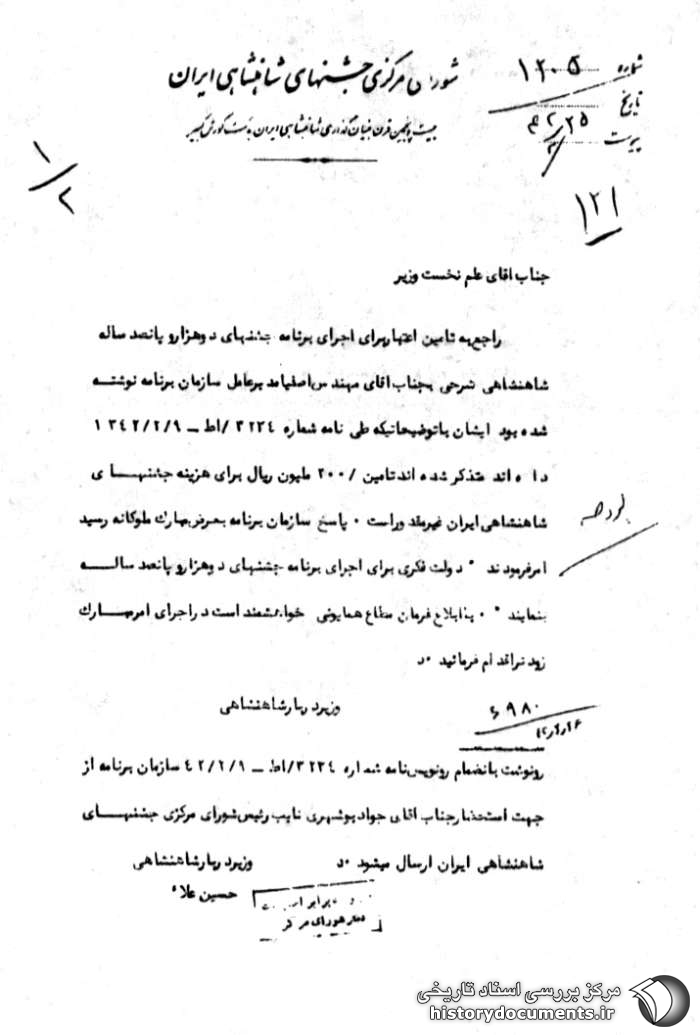 شورای مرکزی جشنهای شاهنشاهی ایران
بیست و پنجمین قرن بنیان گذاری شاهنشاهی ایران بدست کورش کبیر
شماره ۱۲۰۵
تاریخ
پیوست
۱/۲
۱۲۱
جناب اقای علم نخست وزیر
راجع به تامین اعتبار برای اجرای برنامه جشنهای دوهزارو پانصد ساله
شاهنشاهی شرحی بجناب اقای مهندس اصفیا مدیرعامل سازمان برنامه نوشتــه
شده بود ایشان باتوضیحاتیکه طی نامه شماره ۳۲۳۴/اط ــ ۱۳۴۲/۲/۹
داده اند متذکر شده اند تامین /۲۰۰ ملیون ریال برای هزینه جشنهــای
شاهنشاهی ایران غیرمقدوراست ۰ پاسخ سازمان برنامه بعرض مبارك ملوکانه رسید
امرفرمودند " دولت فکری برای اجرای برنامه جشنهای دوهزارو پانصد سالــه
بنمایند " ۰ باابلاغ فرمان مطاع همایونی خواهشمند است دراجرای امرمبــارك
زودتراقدام فرمائید ۰د
بودجه
وزیردربارشاهنشاهی
۶۹۸۰
رونوشت بانضمام رونویس نامه شماره ۳۲۳۴/اط ــ ۴۲/۲/۹ سازمان برنامه از
جهت استحضارجناب اقای جواد بوشهری نایب رئیس شورای مرکزی جشنهــای
شاهنشاهی ایران ارسال میشود ۰د
وزیردربارشاهنشاهی
حسین علاء
برابر
دفتر شورای مرکزی
مرکز بررسی اسناد تاریخی
historydocuments.ir